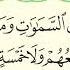 السَّمَٰوَٰتِ وَمَ
عُهُمْ وَلَا خَمْسَةٍ